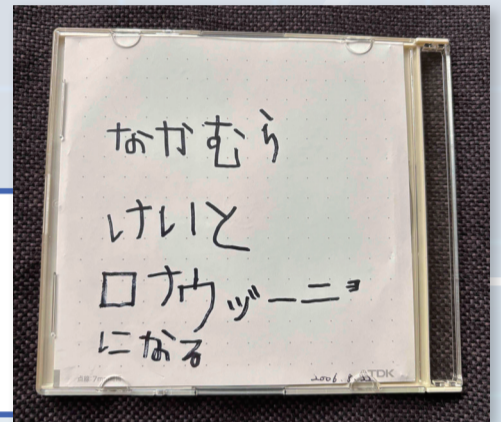 なかむら
けいと
ロナウヅーニョ
になる
TDK